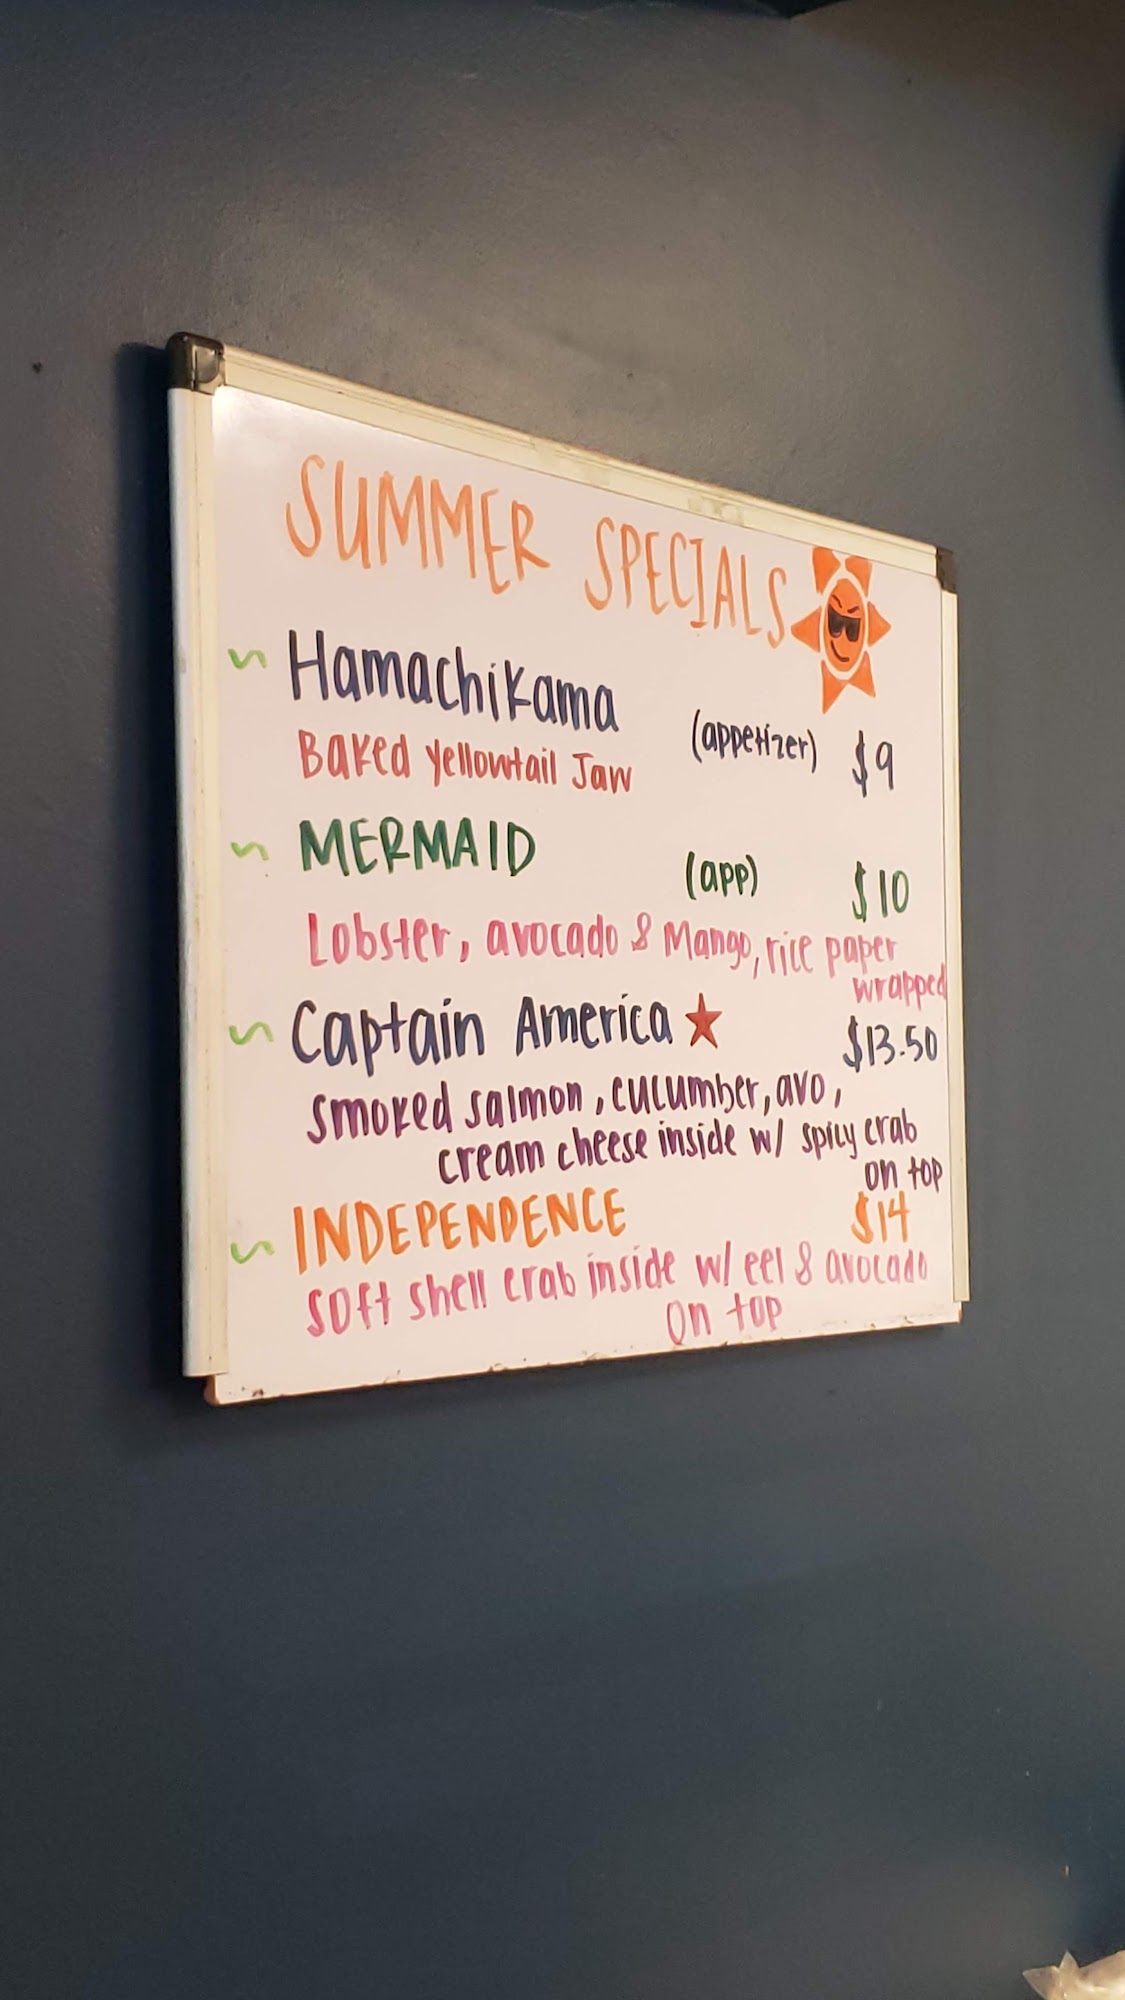 SUMMER SPECIALS
~ HamachiKama (appetizer) $9
Baked Yellowtail Jaw
~ MERMAID (app) $10
Lobster, avocado & Mango, rice paper
wrapped
~ Captain America ★ $13.50
smoked salmon, cucumber, avo,
cream cheese inside w/ spicy crab
on top
~ INDEPENDENCE $14
soft shell crab inside w/ eel & avocado
on top